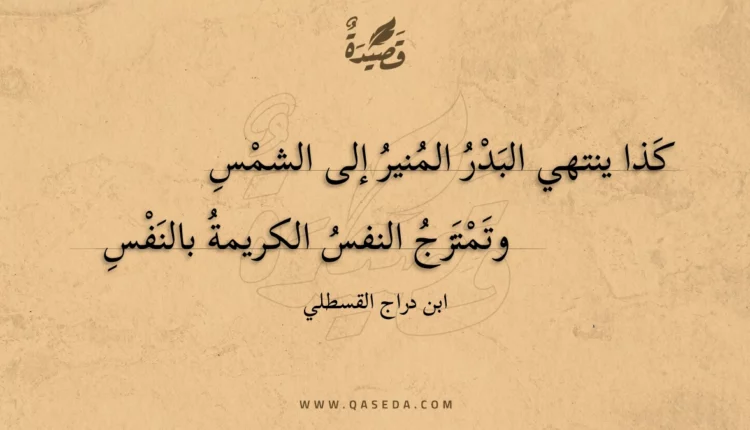 قَصِيدَةٌ
كَذا ينتهي البَدْرُ المُنيرُ إلى الشمْسِ
وتَمْتَزجُ النفسُ الكريمةُ بالنَفْسِ
ابن دراج القسطلي
WWW.QASEDA.COM